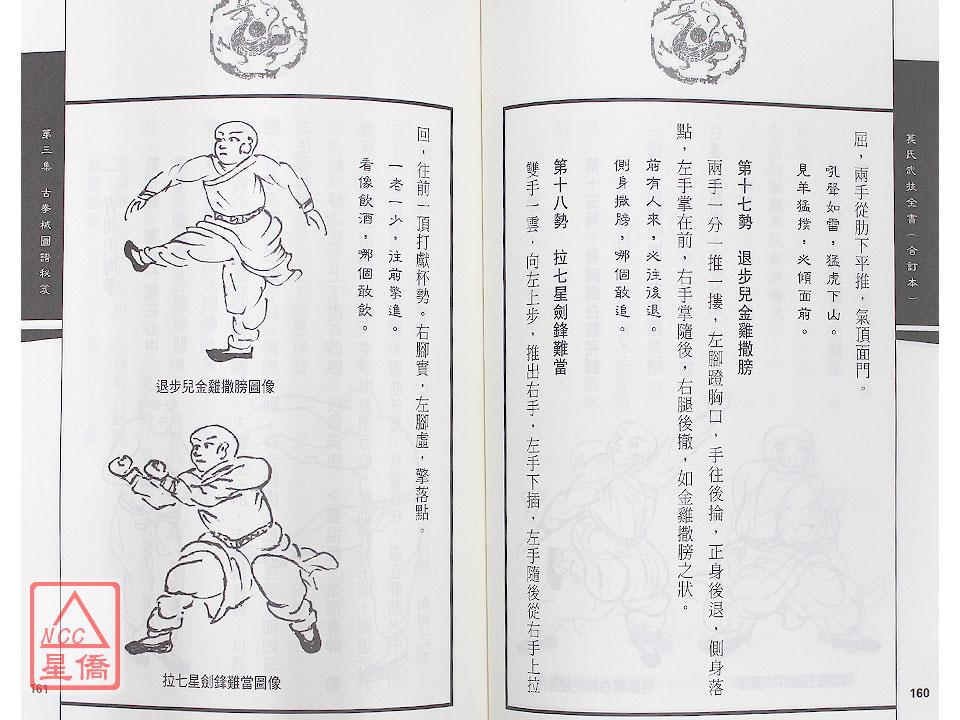 萇氏武技全書（合訂本）
屈，兩手從肋下平推，氣頂面門。
吼聲如雷，猛虎下山。
見羊猛撲，必傾面前。
第十七勢　退步兒金雞撒膀
兩手一分一推一摟，左腳蹬胸口，手往後掄，正身後退，側身落
點，左手掌在前，右手掌隨後，右腿後撤，如金雞撒膀之狀。
前有人來，必往後退。
側身撒膀，哪個敢追。
第十八勢　拉七星劍鋒難當
雙手一雲，向左上步，推出右手，左手下插，左手隨後從右手上拉
160
回，往前一頂打獻杯勢。右腳實，左腳虛，擎落點。
一老一少，往前擎進。
看像飲酒，哪個敢飲。
退步兒金雞撒膀圖像
拉七星劍鋒難當圖像
第三集　古拳械圖譜秘笈
161
NCC
星僑